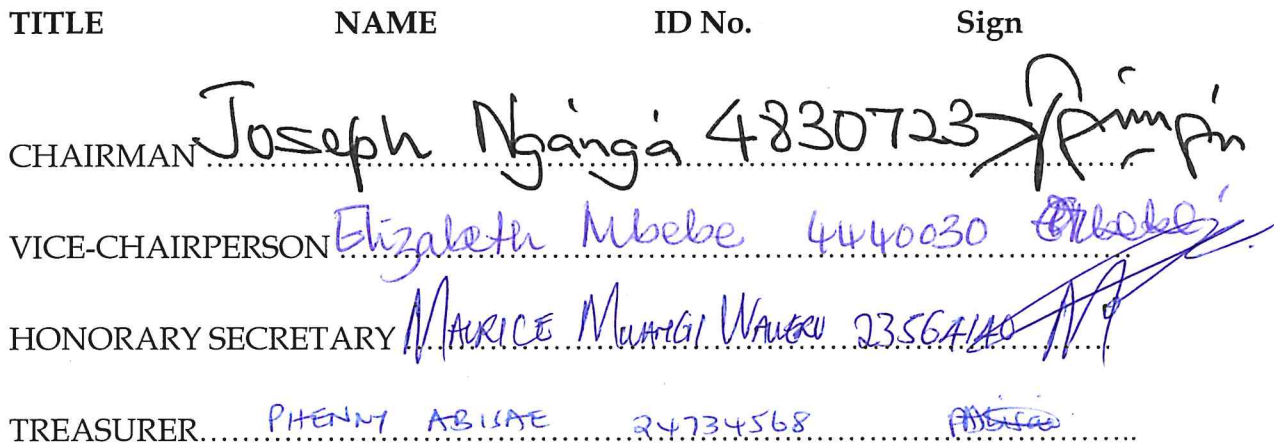 TITLE NAME ID No. Sign
CHAIRMAN Joseph Ng'ang'a 4830723
VICE-CHAIRPERSON Elizabeth Mbebe 4440030
HONORARY SECRETARY MAURICE MWANGI WAWERU 23564140
TREASURER PHENNY ABISAE 24734568